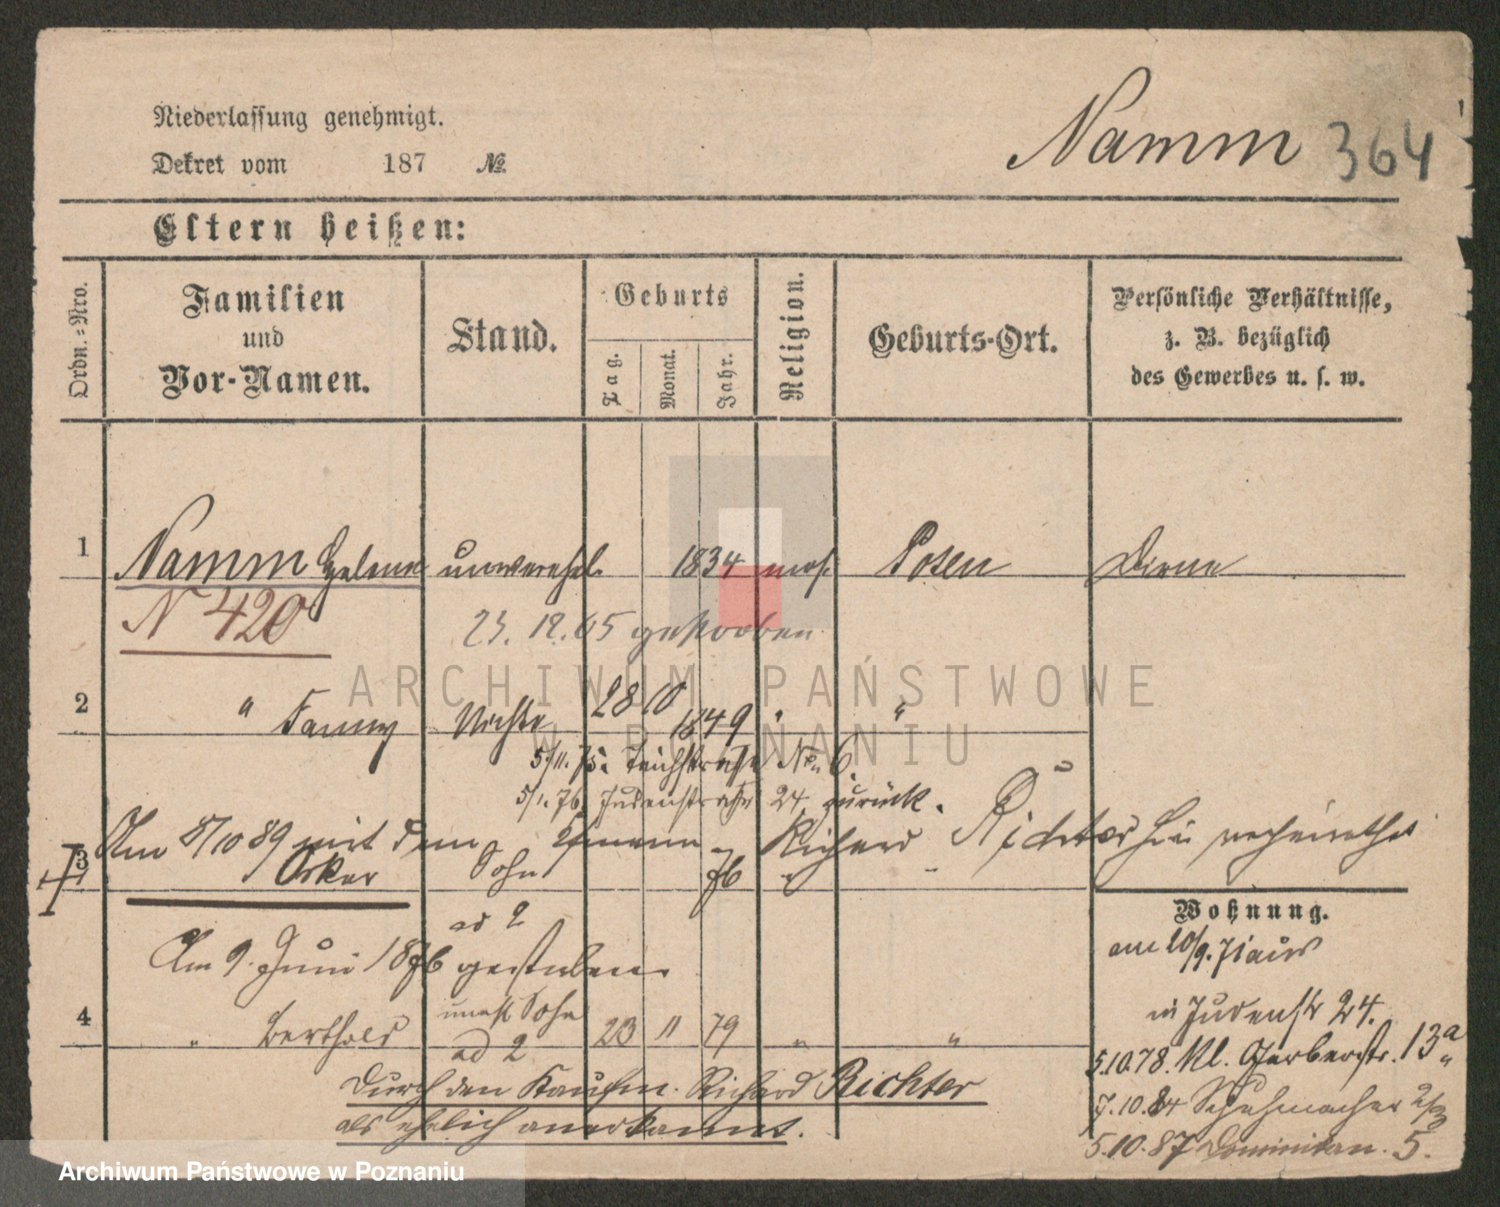 Niederlassung genehmigt.
Namm 364
Dekret vom 187 №
Eltern heißen:
Ordn.-Nro.
Familien und Vor-Namen.
Stand.
Geburts
Tag.
Monat.
Jahr.
Religion.
Geburts-Ort.
Persönliche Verhältnisse,
z. B. bezüglich
des Gewerbes u. s. w.
1 Namm Helene unverehel. 1834 mos. Posen Dirne
N 420
gestorben
2 " Fanny 28 10 1849 " "
5/11.75. Teichstraße No 6
5/1.76 Judenstraße 24 zurück.
Am 8/10 89 mit dem Richard Richter hier verheirathet
3 Oskar Sohn 76 "
ad 2
Wohnung.
Am 9. Juni 1876 gestorben
am 20/9. 71 aus
in Judenstr 24.
4 " Berthold unehl Sohn 23 11 79 " "
ad 2
5.10.78. Kl. Gerberstr. 13a
Durch den Kaufm. Richard Richter
7.10.84 Schuhmacher
als ehelich anerkannt.
5.10.87 Dominikan. 5.
ARCHIWUM PAŃSTWOWE
W POZNANIU
Archiwum Państwowe w Poznaniu